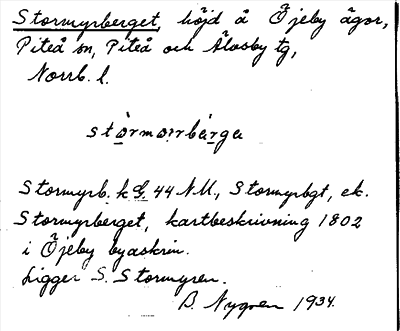 Stormyrberget, höjd å Öjeby ägor,
Piteå sn, Piteå och Älvsby tg,
Norrb. l.
Stormyrb. k G. 44 N.U., Stormyrbgt, ek.
Stormyrberget, kartbeskrivning 1802
i Öjeby byaskrin.
Ligger S. Stormyren.
B. Nygren 1934.